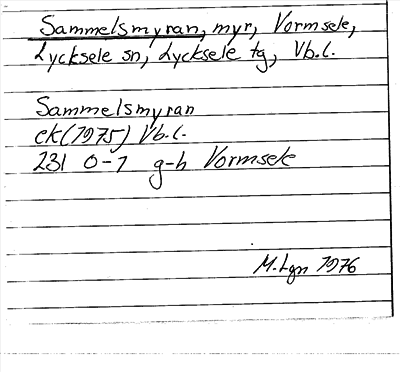 Sammelsmyran, myr, Vormsele,
Lycksele sn, Lycksele tg, Vb.l.
Sammelsmyran
ek(1975) Vb.l.
231 0-1 g-h Vormsele
M.Lgn 1976